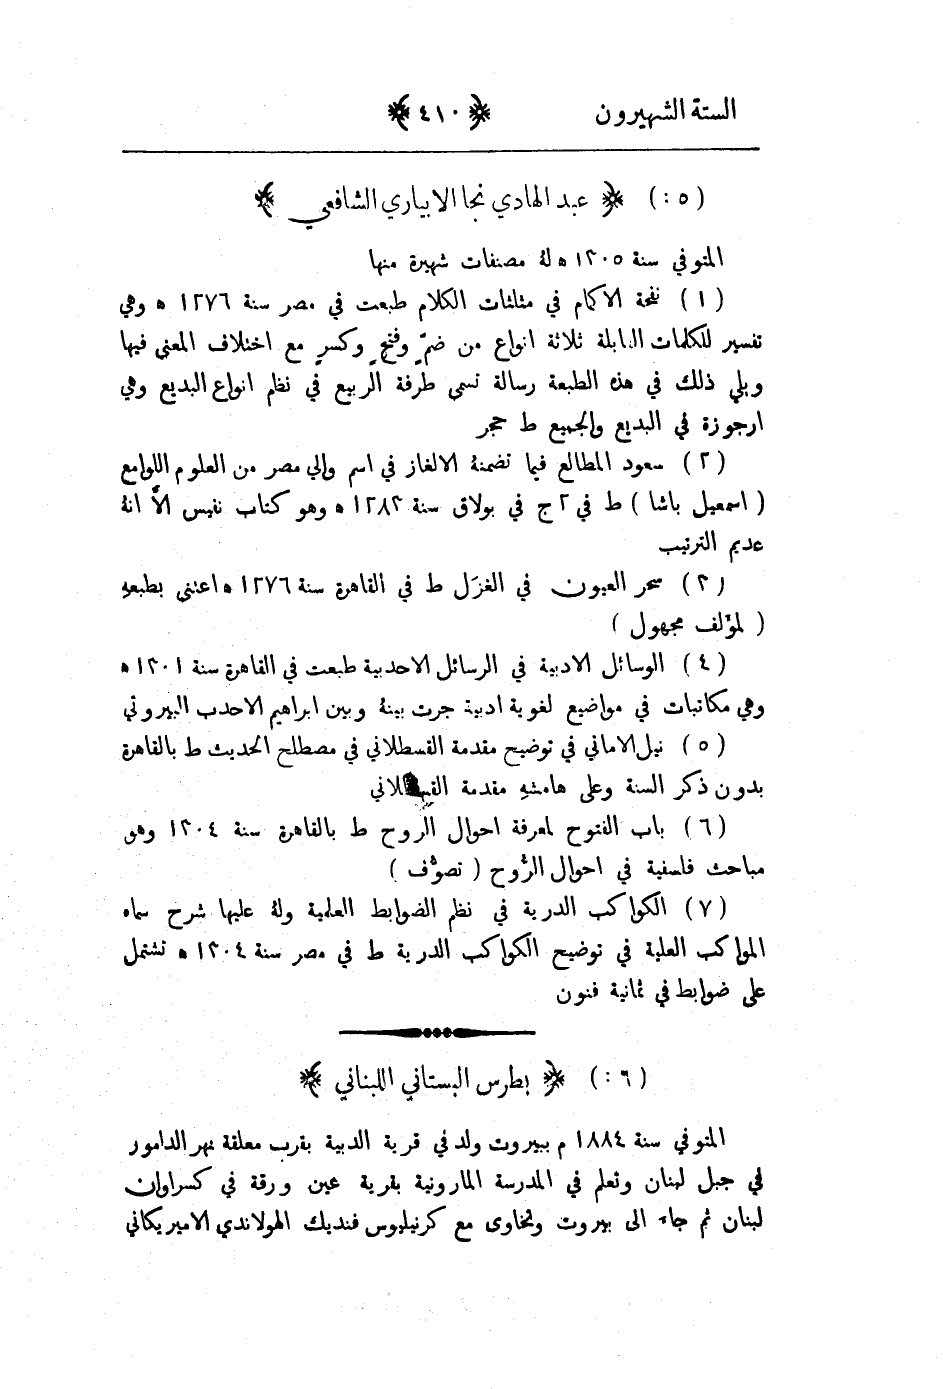 الستة الشهيرون ﴿ ٤١٠ ﴾
( ٥ : ) ﴿ عبد الهادي نجا الابياري الشافعي ﴾
المتوفي سنة ١٣٠٥ ه لهُ مصنفات شهيرة منها
( ١ ) نفحة الاكمام في مثلثات الكلام طبعت في مصر سنة ١٢٧٦ ه وهي
تفسير للكلمات القابلة ثلاثة انواع من ضمٍّ وفتحٍ وكسرٍ مع اختلاف المعنى فيها
ويلي ذلك في هذه الطبعة رسالة تسمى طرفة الربيع في نظم انواع البديع وهي
ارجوزة في البديع والجميع ط حجر
( ٢ ) سعود المطالع فيما تضمنهُ الالغاز في اسم والي مصر من العلوم اللوامع
( اسمعيل باشا ) ط في ٢ ج في بولاق سنة ١٢٨٣ ه وهو كتاب نفيس الاَّ انهُ
عديم الترتيب
( ٣ ) سحر العيون في الغزَل ط في القاهرة سنة ١٢٧٦ ه اعتنى بطبعهِ
( لمؤلف مجهول )
( ٤ ) الوسائل الادبية في الرسائل الاحدبية طبعت في القاهرة سنة ١٣٠١ ه
وهي مكاتبات في مواضيع لغوية ادبية جرت بينهُ وبين ابراهيم الاحدب البيروتي
( ٥ ) نيل الاماني في توضيح مقدمة القسطلاني في مصطلح الحديث ط بالقاهرة
بدون ذكر السنة وعلى هامشهِ مقدمة القسطلاني
( ٦ ) باب الفتوح لمعرفة احوال الروح ط بالقاهرة سنة ١٣٠٤ وهو
مباحث فلسفية في احوال الرُّوح ( تصوُّف )
( ٧ ) الكواكب الدرية في نظم الضوابط العلمية ولهُ عليها شرح سماه
المواكب العلية في توضيح الكواكب الدرية ط في مصر سنة ١٣٠٤ ه تشتمل
على ضوابط في ثمانية فنون
( ٦ : ) ﴿ بطرس البستاني اللبناني ﴾
المتوفي سنة ١٨٨٤ م ببيروت ولد في قرية الدبية بقرب معلقة نهر الدامور
في جبل لبنان وتعلم في المدرسة المارونية بقرية عين ورقة في كسراوان
لبنان ثم جاء الى بيروت وتخاوى مع كرنيليوس فنديك الهولاندي الاميريكاني